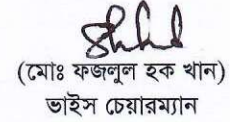 (মোঃ ফজলুল হক খান)
ভাইস চেয়ারম্যান